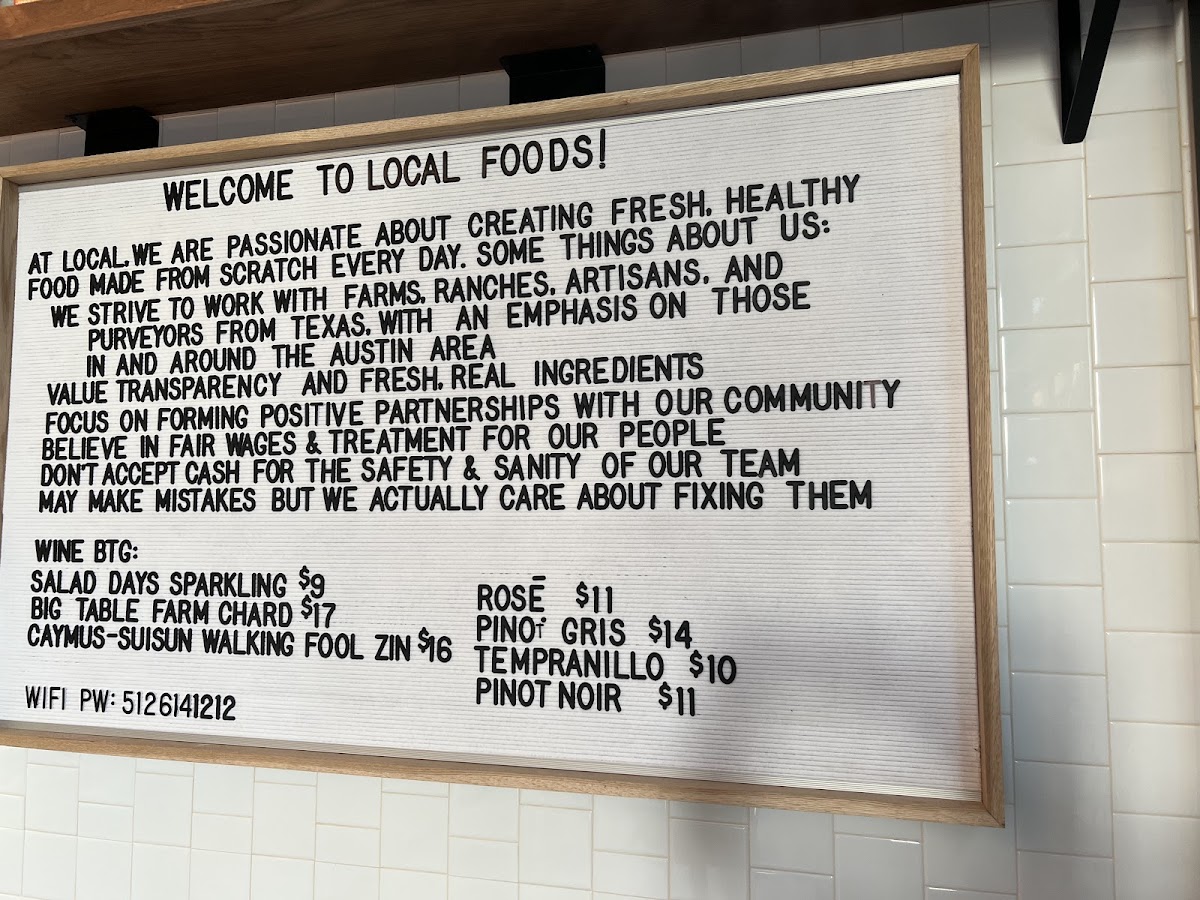 WELCOME TO LOCAL FOODS!
AT LOCAL, WE ARE PASSIONATE ABOUT CREATING FRESH, HEALTHY
FOOD MADE FROM SCRATCH EVERY DAY. SOME THINGS ABOUT US:
WE STRIVE TO WORK WITH FARMS, RANCHES, ARTISANS, AND
PURVEYORS FROM TEXAS, WITH AN EMPHASIS ON THOSE
IN AND AROUND THE AUSTIN AREA
VALUE TRANSPARENCY AND FRESH, REAL INGREDIENTS
FOCUS ON FORMING POSITIVE PARTNERSHIPS WITH OUR COMMUNITY
BELIEVE IN FAIR WAGES & TREATMENT FOR OUR PEOPLE
DON'T ACCEPT CASH FOR THE SAFETY & SANITY OF OUR TEAM
MAY MAKE MISTAKES BUT WE ACTUALLY CARE ABOUT FIXING THEM
WINE BTG:
SALAD DAYS SPARKLING $9
BIG TABLE FARM CHARD $17
CAYMUS-SUISUN WALKING FOOL ZIN $16
ROSĒ $11
PINOT GRIS $14
TEMPRANILLO $10
PINOT NOIR $11
WIFI PW: 5126141212